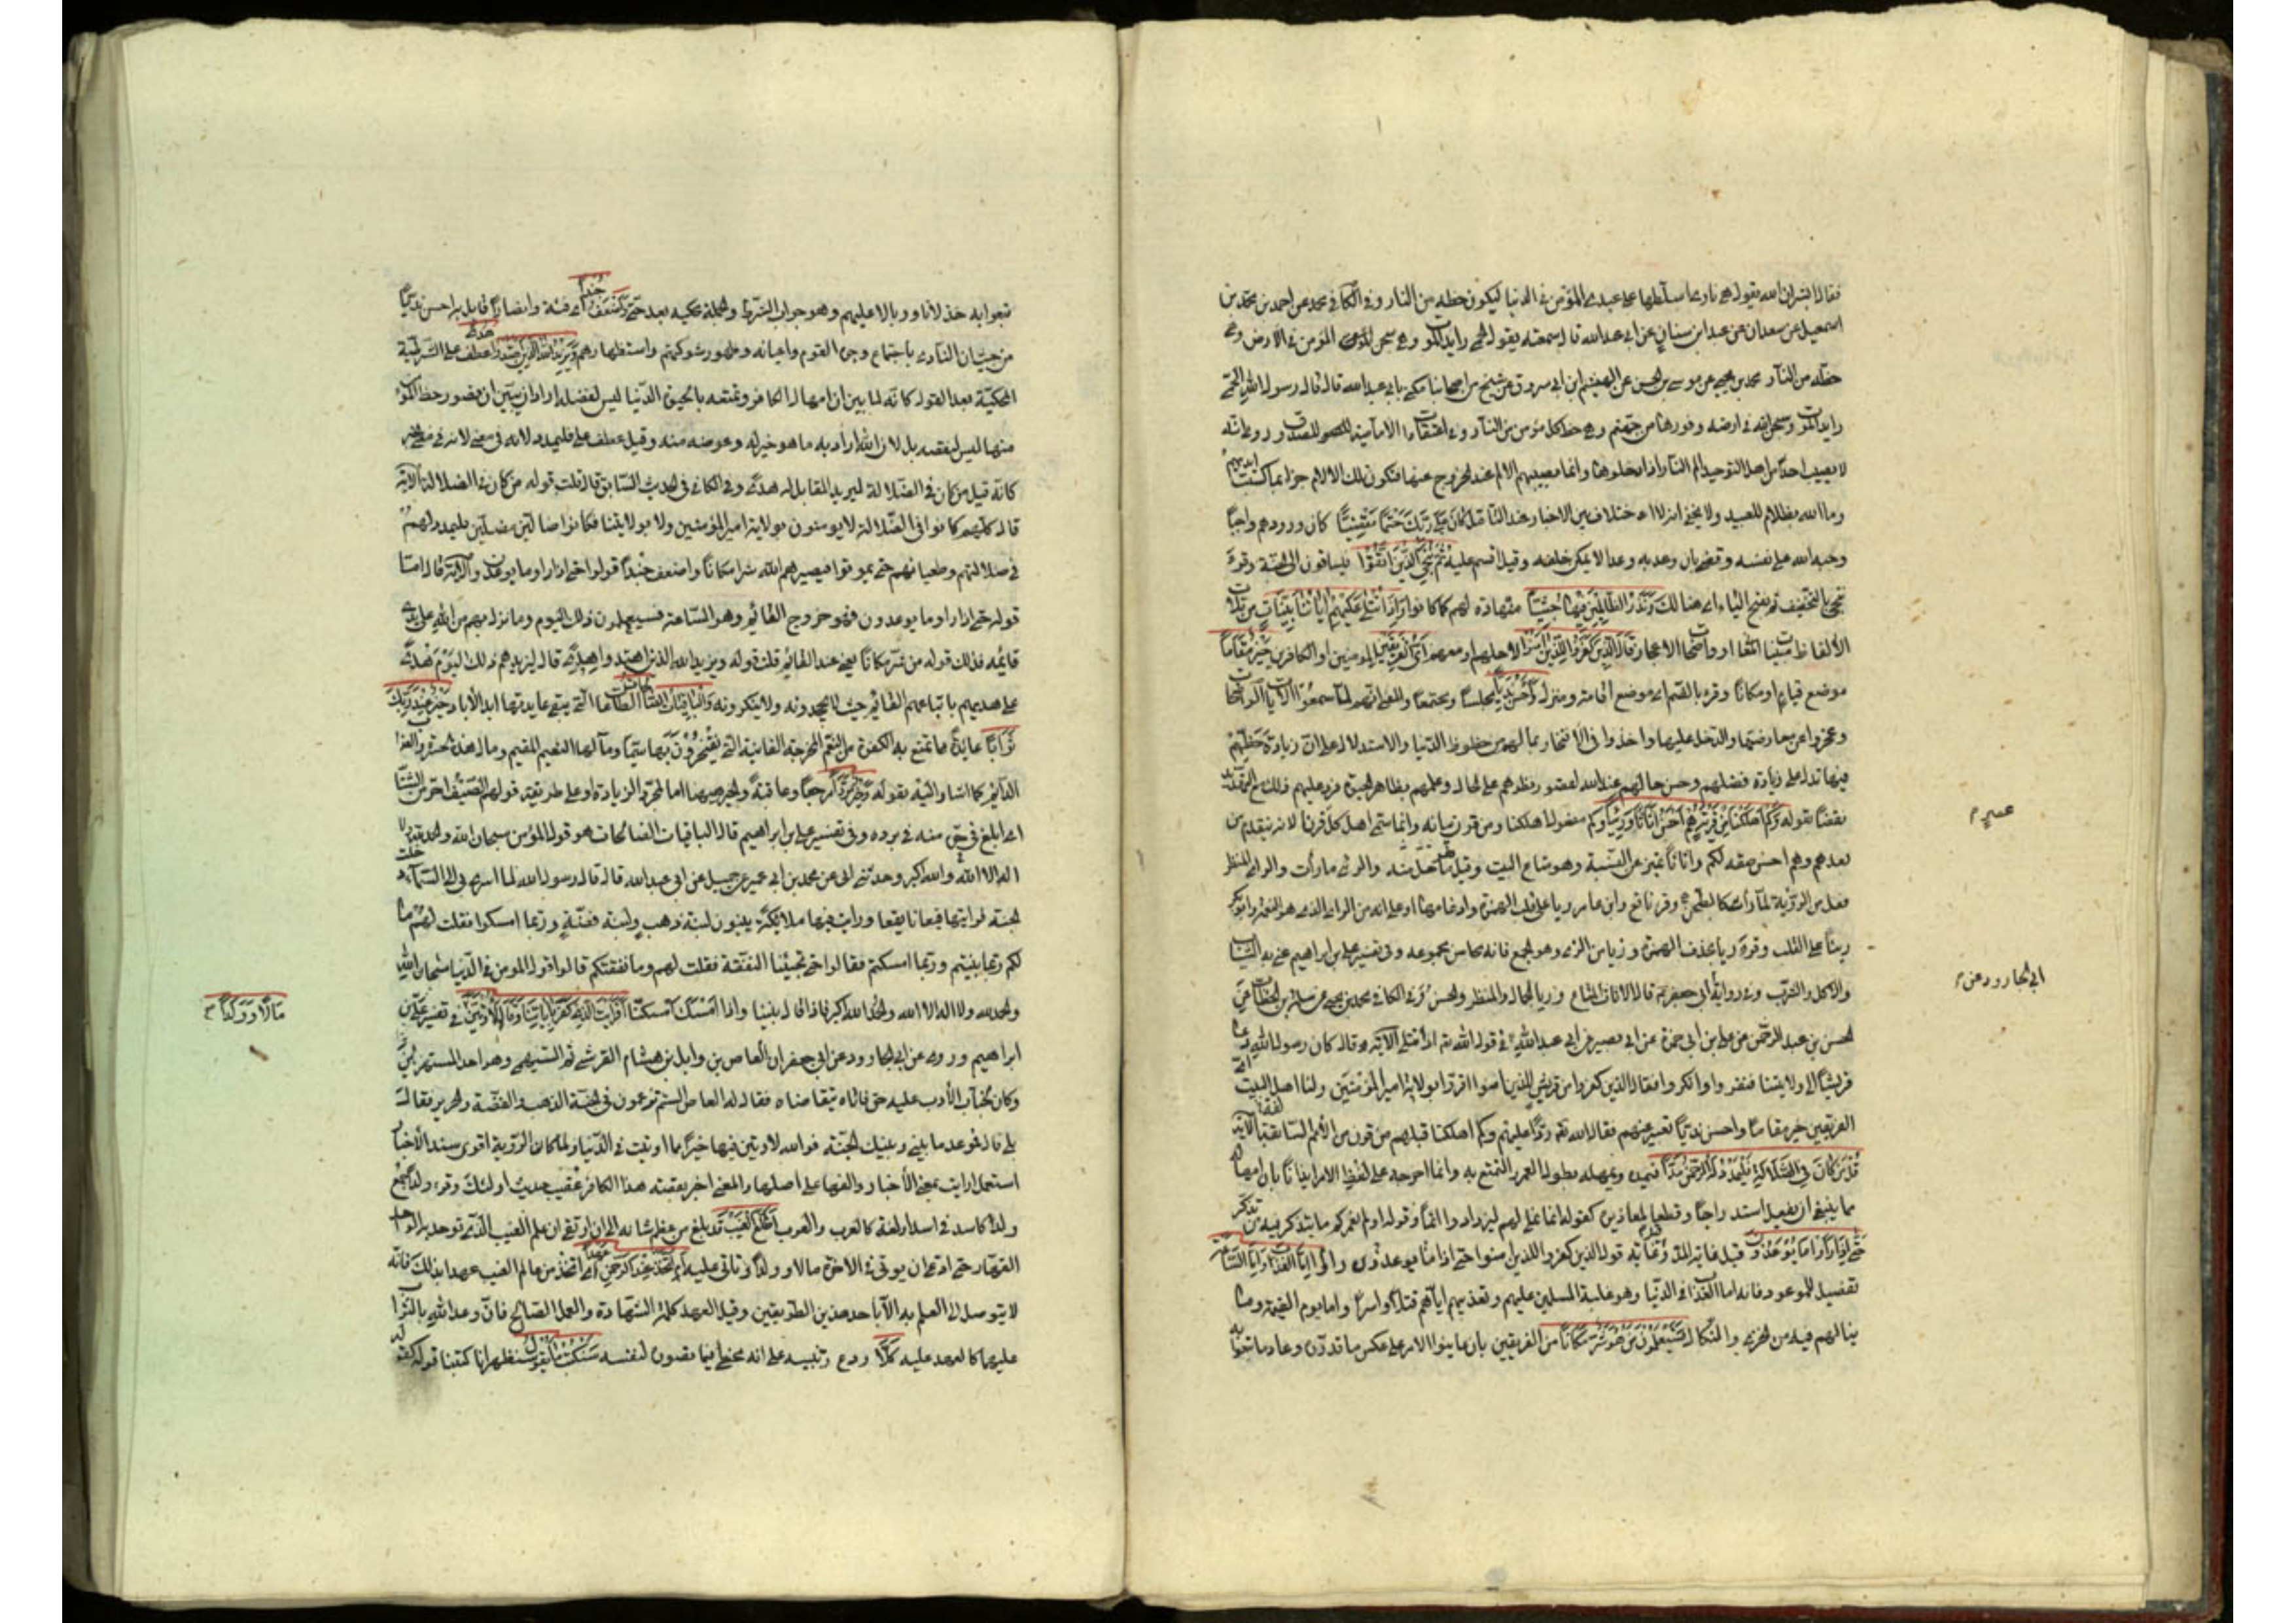 فقال ابشر ان الله يقول هي ناري اسلطها على عبدي المؤمن في الدنيا ليكون حظه من النار وفي الكافي محمد عن احمد بن محمد بن
اسمعيل عن سعدان عن عبد ابن سنان عن ابي عبد الله قال سمعته يقول الحمى رايد الموت وهي سجن المؤمن في الارض وهي
حظه من النار محمد بن يحيى عن موسى بن الحسن عن الهيثم ابن ابي مسروق عن شيخ من اصحابنا يكنى بابي عبد الله قال قال رسول الله الحمى
رايد الموت وسجن الله في ارضه وفورها من جهنم وهي حظ كل مؤمن من النار وفي اعتقادات الامامية للصدوق وروي انه
لا يصيب احدا من اهل التوحيد الم النار اذا دخلوها وانما يصيبهم الالم عند الخروج عنها فتكون تلك الالام جزاء بما كسبت ايديهم
وما الله بظلام للعبيد ولا يخفى انه لا اختلاف بين الاخبار عند التامل كان على ربك حتما مقضيا كان ورودهم واجبا
وجبه الله على نفسه وقضى بان وعد به وعدا لا يمكن خلفه وقيل اقسم عليه ثم ننجي الذين اتقوا فيساقون الى الجنة وقرئ
ننجي بالتخفيف ثم بفتح الثاء اي هنالك ونذر الظالمين فيها جثيا منهارة لهم كما كانوا واذا تتلى عليهم اياتنا بينات مرتلات
الالفاظ مبينات المعاني او واضحات الاعجاز وقال الذين كفروا للذين امنوا لاجلهم او معهم اي الفريقين المؤمنين او الكافرين خير مقاما
موضع قيام او مكانا وقرئ بالضم اي موضع اقامة ومنزل واحسن نديا مجلسا ومجتمعا والمعنى انهم لما سمعوا الايات الواضحات
وعجزوا عن معارضتها والدخل عليها واخذوا في الافتخار بما لهم من حظوظ الدنيا والاستدلال على ان زيادة حظهم
فيها تدل على زيادة فضلهم وحسن حالهم عند الله لقصور نظرهم على الحال وعلمهم بظاهر الحيوة فرد عليهم ذلك مع التهديد
نقضا بقوله وكم اهلكنا من قرن هم احسن اثاثا ورئيا وكم مفعول اهلكنا ومن قرن بيانه وانما سمي اهل كل قرنا لانه يتقدم من
بعدهم وهم احسن صفة لكم واثاثا تميز عن النسبة وهو متاع البيت وقيل ما جد منه والرثي ما رث والرئي المنظر
فعل من الرؤية لما رأى كالطحن وقرء نافع وابن عامر ريا على قلب الهمزة وادغامها او على انه من الري الذي هو النعمة وابو بكر
ريئا على القلب وقرئ ريا بحذف الهمزة وزيا من الزي وهو الجمع فانه محاسن مجموعة وفي تفسير علي بن ابراهيم عنى به الثياب
والاكل والشرب وفي رواية ابي جعفر قال الاثاث المتاع وريا الجمال والمنظر الحسن وفي الكافي محمد بن يحيى عن سلمة بن الخطاب عن
الحسن بن عبد الرحمن عن علي بن ابي حمزة عن ابي بصير عن ابي عبد الله في قول الله واذا تتلى الاية قال كان رسول الله دعا
قريشا الى ولايتنا فنفروا وانكروا فقال الذين كفروا من قريش للذين امنوا اقروا بولاية امير المؤمنين ولنا اهل البيت اي
الفريقين خير مقاما واحسن نديا تعييرا منهم فقال الله ردا عليهم وكم اهلكنا قبلهم من قرن من الامم السابقة الاية
قل من كان في الضلالة فليمدد له الرحمن مدا فيمده ويمهله بطول العمر والتمتع به وانما اخرجه على لفظ الامر ايذانا بان امهاله
مما ينبغي ان يفعل استدراجا وقطعا لمعاذيره كقوله انما نملي لهم ليزدادوا اثما وقوله اولم نعمركم ما يتذكر فيه من تذكر
حتى اذا راوا ما يوعدون قيل غاية المد وقيل غاية قول الذين كفروا للذين امنوا حتى اذا راوا ما يوعدون واما العذاب واما الساعة
تفصيل للموعود فانه اما العذاب في الدنيا وهو غلبة المسلمين عليهم وتعذيبهم اياهم قتلا واسرا واما يوم القيمة وما
ينالهم فيه من الخزي والنكال فسيعلمون من هو شر مكانا من الفريقين بان عاينوا الامر على عكس ما قدروه وعاد ما متعوا به
عمير
ابي الجارود عن
تمتعوا به خذلانا ووبالا عليهم وهو جواب الشرط والجملة محكية بعد حتى واضعف جندا اي فئة وانصارا قابل به احسن نديا
من حيث ان النادي باجتماع وجوه القوم واعيانه وظهور شوكتهم واستظهارهم ويزيد الله الذين اهتدوا هدى عطف على الشرطية
المحكية بعد القول كانه لما بين ان امهال الكافر وتمتعه بالحيوة الدنيا ليس لفضله اراد ان يبين ان قصور حظ المؤمن
منها ليس لنقصه بل لان الله اراد به ما هو خير له وعوضه منه وقيل عطف على فليمدد لانه في معنى الخبر
كانه قيل من كان في الضلالة ليزيد المقابل له هدى وفي الكافي في الحديث السابق قال قلت قوله من كان في الضلالة الاية
قال كلهم كانوا في الضلالة لا يؤمنون بولاية امير المؤمنين ولا بولايتنا فكانوا ضالين مضلين فليمدد لهم
في ضلالتهم وطغيانهم حتى يموتوا فيصيرهم الله شرا مكانا واضعف جندا قوله حتى اذا راوا ما يوعدون الاية قال اما
قوله حتى اذا راوا ما يوعدون فهو خروج القائم وهو الساعة فسيعلمون ذلك اليوم وما نزل بهم من الله على يدي
قائمه فذلك قوله من شر مكانا يعني عند القائم قلت قوله ويزيد الله الذين اهتدوا هدى قال يزيدهم ذلك اليوم هدى
على هديهم باتباعهم القائم حيث لا يجحدونه ولا ينكرونه والباقيات الصالحات الطاعات التي يبقى عايدتها ابد الاباد خير عند ربك
ثوابا عايدة مما تمتع به الكفرة من النعم المخدجة الفانية التي يفتخرون بها سيما ومآلها النعيم المقيم ومآل هذه الحسرة والعذاب
الدائم كما اشار اليه بقوله وخير مردا مرجعا وعاقبة والخير هيهنا اما لمجرد الزيادة او على طريقة قولهم الصيف احر من الشتاء
اي ابلغ في حره منه في برده وفي تفسير علي بن ابراهيم قال الباقيات الصالحات هو قول المؤمن سبحان الله والحمد لله ولا
اله الا الله والله اكبر وحدثني ابي عن محمد بن ابي عمير عن جميل عن ابي عبد الله قال قال رسول الله لما اسري بي الى السماء دخلت
الجنة فرايت فيها قيعانا يققا ورايت فيها ملائكة يبنون لبنة ذهب ولبنة فضة وربما امسكوا فقلت لهم ما
لكم ربما بنيتم وربما امسكتم فقالوا حتى تجيئنا النفقة فقلت لهم وما نفقتكم قالوا قول المؤمن في الدنيا سبحان الله
والحمد لله ولا اله الا الله والله اكبر فاذا قال بنينا واذا امسك امسكنا افرايت الذي كفر باياتنا وقال لاوتين في تفسير علي بن
ابراهيم وروي عن ابي الجارود عن ابي جعفر ان العاص بن وايل بن هشام القرشي ثم السهمي وهو احد المستهزئين
وكان لخباب بن الارت عليه حق فاتاه يتقاضاه فقال له العاص الستم تزعمون في الجنة الذهب والفضة والحرير فقال
بلى قال فموعد ما بيني وبينك الجنة فوالله لاوتين فيها خيرا مما اوتيت في الدنيا ولما كان الرؤية اقوى سند الاخبار
استعمل ارايت بمعنى الاخبار والفاء على اصلها والمعنى اخبر بقصة هذا الكافر عقيب حديث اولئك وقرء ولدا جمع
ولد كاسد في اسد او لغة كالعرب والعرب اطلع الغيب قد بلغ من عظم شانه الى ان ارتقى ان علم الغيب الذي توحد به الواحد
القهار حتى ادعى ان يوتى في الاخرة مالا وولدا وتالى عليه ام اتخذ عند الرحمن عهدا اي اتخذ من عالم الغيب عهدا بذلك فانه
لا يتوصل الى العلم به الا باحد هذين الطريقين وقيل العهد كلمة الشهادة والعمل الصالح فان وعد الله بالثواب
عليهما كالعهد عليه كلا ردع وتنبيه على انه مخطئ فيما تصوره لنفسه سنكتب ما يقول سنظهر انا كتبنا قوله كقوله
مالا وولدا